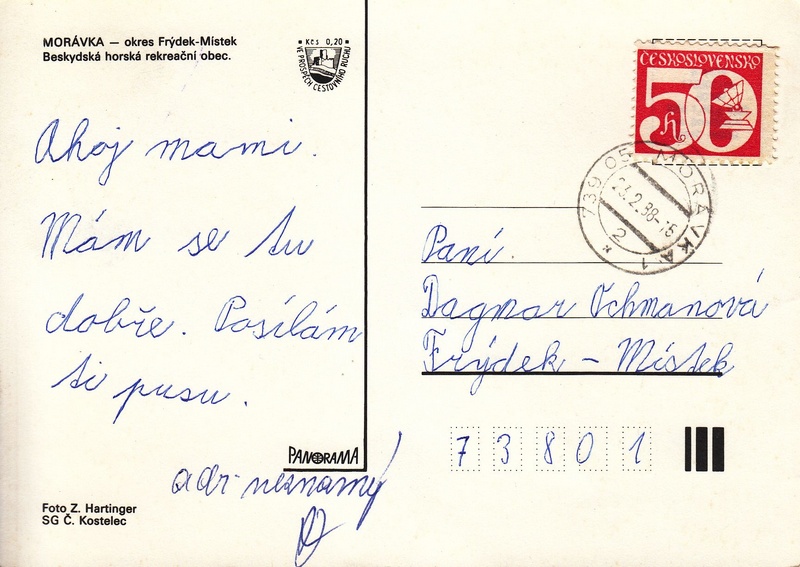 MORÁVKA — okres Frýdek-Místek
Beskydská horská rekreační obec.
Kčs 0,20
VE PROSPĚCH CESTOVNÍHO RUCHU
Ahoj mami.
Mám se tu
dobře. Posílám
ti pusu.
PANORAMA
adr. neznámý
Foto Z. Hartinger
SG Č. Kostelec
ČESKOSLOVENSKO
50
h
739 05 MORÁVKA 1
23.2.88-16
2
Paní
Dagmar Ochmanová
Frýdek - Místek
73801